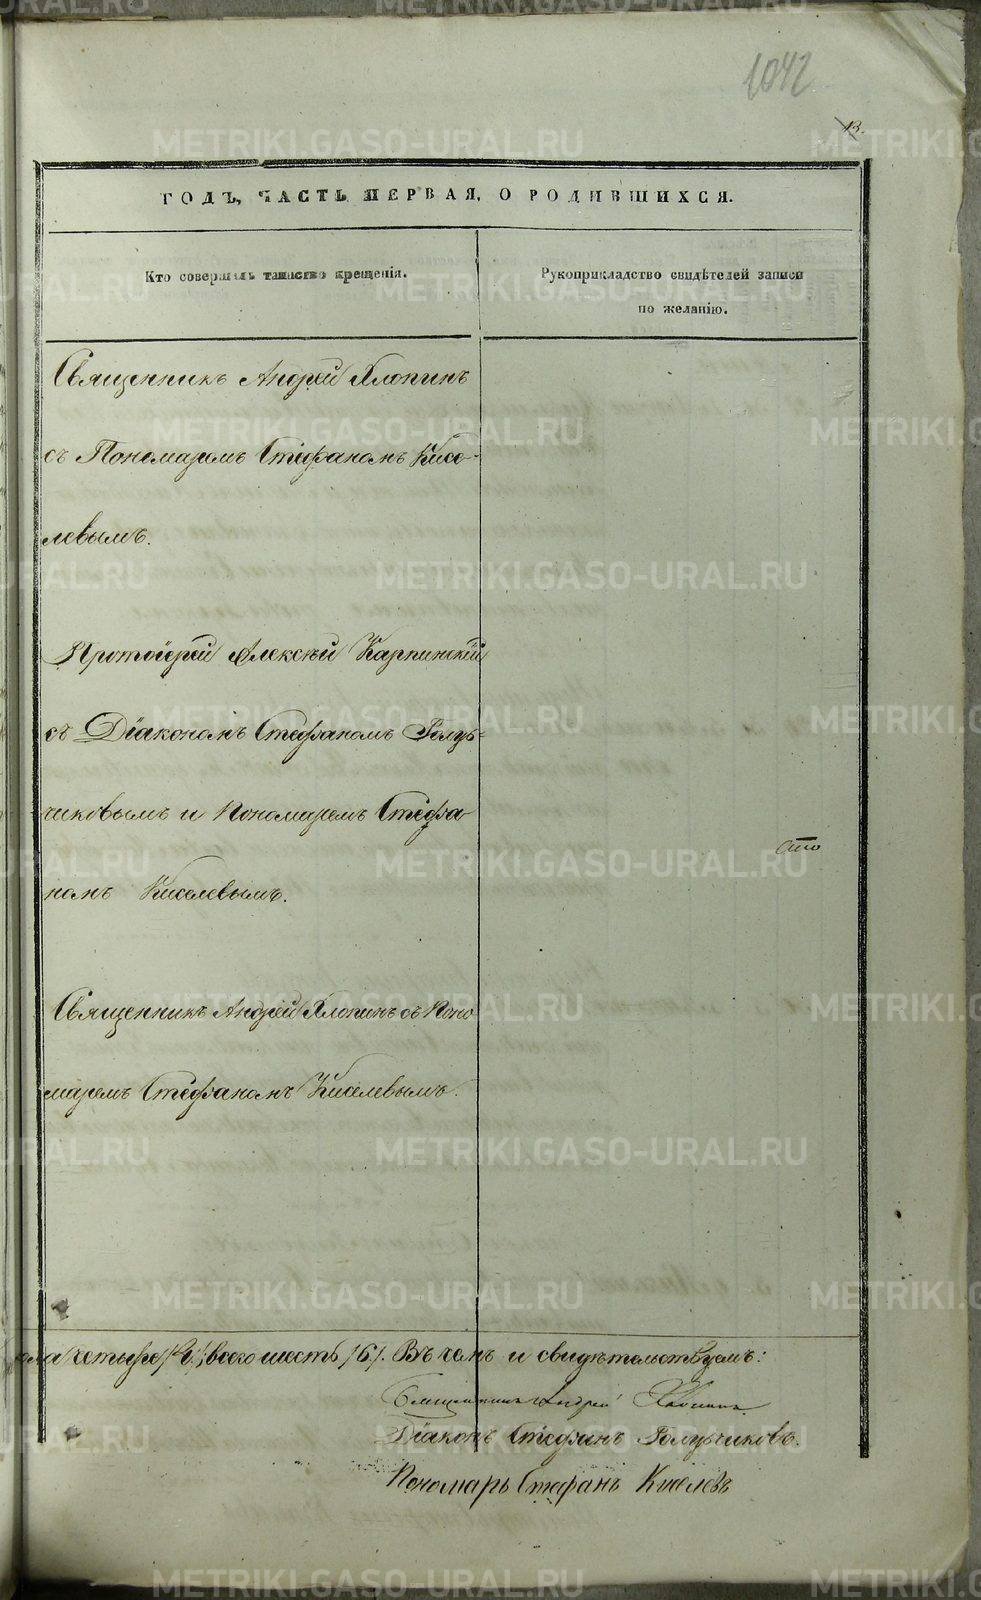 1042
13.
ГОДЪ, ЧАСТЬ ПЕРВАЯ, О РОДИВШИХСЯ.
Кто совершалъ таинство крещенія.
Рукоприкладство свидѣтелей записи
по желанію.
Священникъ Андрей Хлопинъ
съ Пономаремъ Стефаномъ Кисе-
левымъ.
Протоіерей Алексѣй Карпинскій
съ Діакономъ Стефаномъ Голуб-
чиковымъ и Пономаремъ Стефа-
номъ Киселевымъ.
Священникъ Андрей Хлопинъ съ Поно
маремъ Стефаномъ Киселевымъ.
пола четыре /4/, всего шесть /6/. Въ чемъ и свидѣтельствуемъ:
Священникъ Андрей Хлопинъ
Діаконъ Стефанъ Голубчиковъ.
Пономарь Стефанъ Киселевъ
METRIKI.GASO-URAL.RU